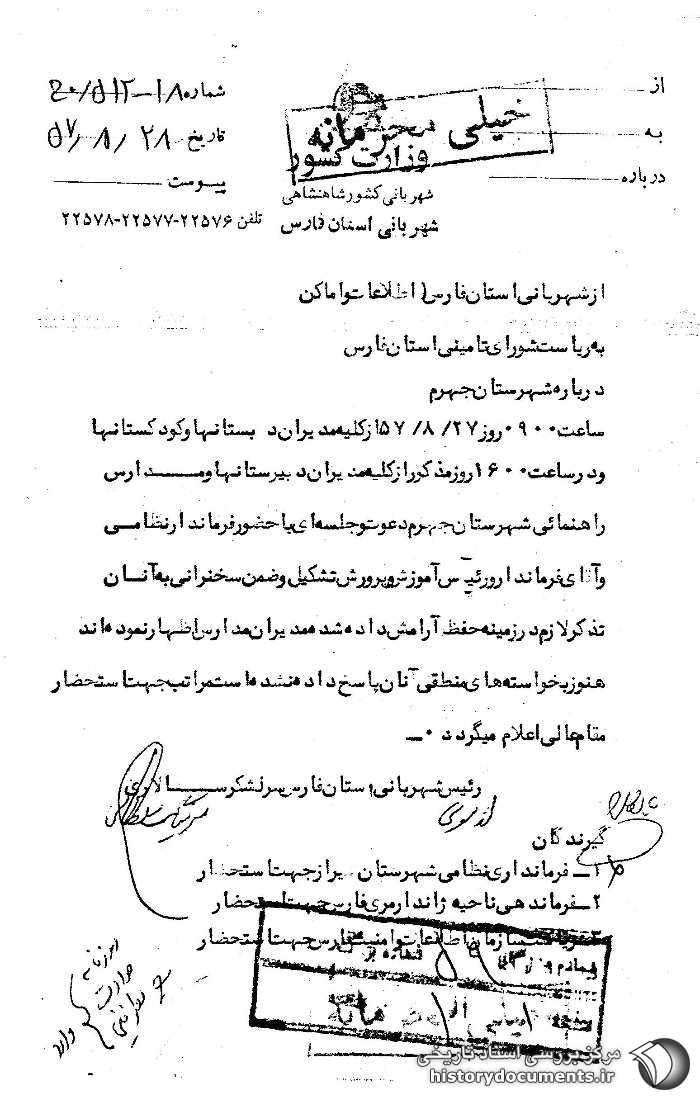 از
به
درباره
خیلی محرمانه
وزارت کشور
شهربانی کشور شاهنشاهی
شهربانی استان فارس
شماره ۱۸-۵۱۲/۲۰
تاریخ ۲۸ /۸ /۵۷
پیوست
تلفن ۲۲۵۷۶-۲۲۵۷۷-۲۲۵۷۸
از شهربانی استان فارس( اطلاعات و اماکن
به ریاست شورای تامینی استان فارس
درباره شهرستان جهرم
ساعت ۰۹۰۰ روز ۲۷/ ۸/ ۵۷ از کلیه مدیران دبستانها و کودکستانها
و در ساعت ۱۶۰۰ روز مذکور از کلیه مدیران دبیرستانها و مدارس
راهنمائی شهرستان جهرم دعوت و جلسه‌ای با حضور فرماندار نظامی
و آقای فرماندار و رئیس آموزش و پرورش تشکیل و ضمن سخنرانی به آنان
تذکر لازم در زمینه حفظ آرامش داده شده مدیران مدارس اظهار نموده‌اند
هنوز بخواسته‌های منطقی آنان پاسخ داده نشده است مراتب جهت استحضار
مقام عالی اعلام میگردد ۰ــ
رئیس شهربانی استان فارس سرلشکر سالاری
از سوی
گیرندگان
۱ــ فرمانداری نظامی شهرستان شیراز جهت استحضار
۲ــ فرماندهی ناحیه ژاندارمری فارس جهت استحضار
۳ــ ریاست سازمان اطلاعات و امنیت فارس جهت استحضار
شماره
صفحه
مرکز بررسی اسناد تاریخی
historydocuments.ir